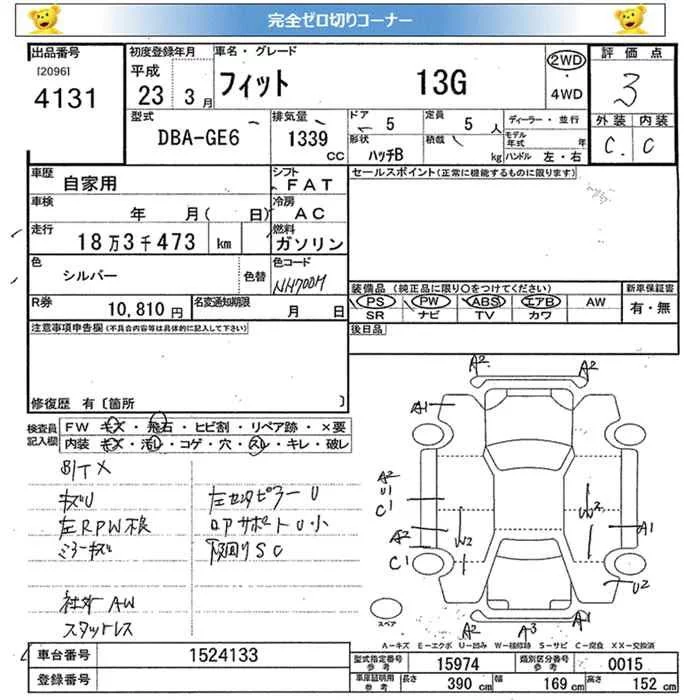 完全ゼロ切りコーナー
出品番号
[2096]
4131
初度登録年月
平成
23 3月
車名・グレード
フィット 13G
2WD
・
4WD
評価点
3
外装 内装
C. C
型式
DBA-GE6
排気量
1339
CC
ドア 5
定員 5 人
形状
ハッチB
積載
kg
ディーラー・並行
モデル年式 年
ハンドル 左・右
車歴
自家用
シフト
FAT
車検
年 月( 日)
冷房
AC
走行
18万3千473 km
燃料
ガソリン
色
シルバー
色替
色コード
NH700M
R券
10,810 円
名変通知期限
月 日
セールスポイント(正常に機能するものに限ります)
装備品 (純正品に限り○をつけてください)
新車保証書
PS PW ABS エアB AW
有・無
SR ナビ TV カワ
後日品
注意事項申告欄(不具合内容等は具体的に記入して下さい)
修復歴 有〔箇所 〕
検査員
記入欄
FW キズ・飛石・ヒビ割・リペア跡・×要
内装 キズ・汚レ・コゲ・穴・スレ・キレ・破レ
キズU
左センタピラーU
左RPW不良
コアサポートU小
ミラーキズ
下回りSC
社外AW
スタッドレス
A2
A2
A1
A2
U1
C1
A2
C1
W2
W2
A1
U2
A2
A3
A1
スペア
A-キズ E-エクボ U-凹み W-補修跡 S-サビ C-腐食 XX-交換済
車台番号
1524133
登録番号
型式指定番号
参考
15974
類別区分番号
参考
0015
車庫証明用
参考
長さ 390 cm
幅 169 cm
高さ 152 cm